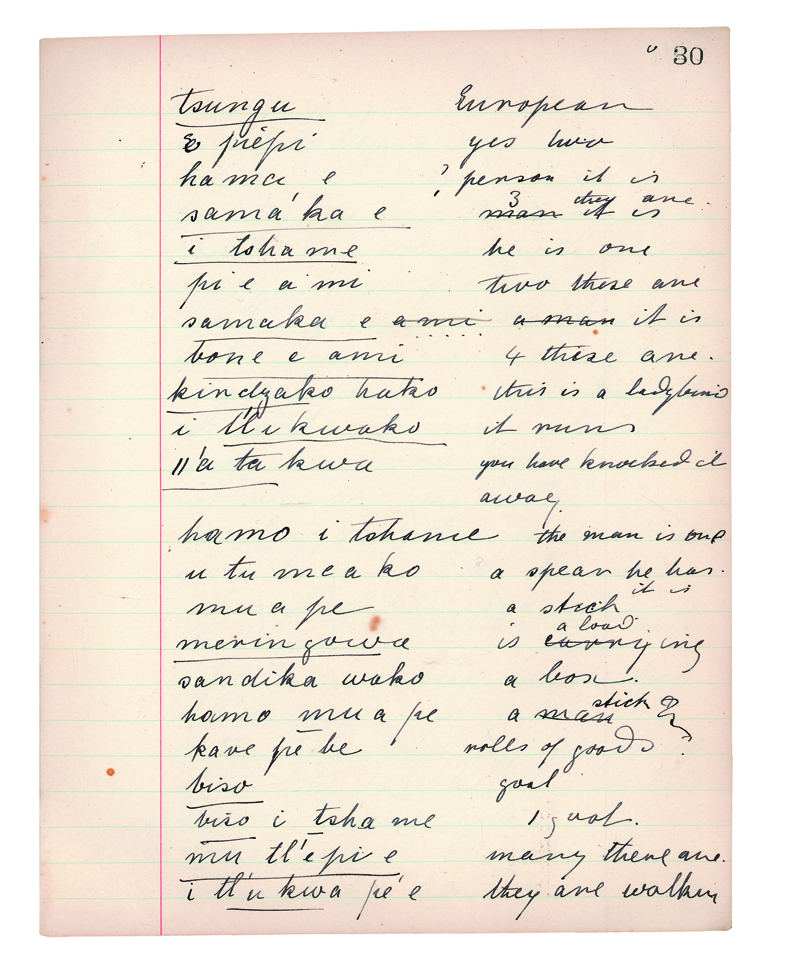 30
tsungu European
e piépi yes two
hama e ? person it is
samá'ka e 3 man it is they are.
i tshame he is one
pi e a mi two these are
samaka e ami a man it is
bone e ami 4 these are.
kindzako hako this is a ladybird
i tl'i kwako it runs
ll'a ta kwa you have knocked it
away
hamo i tshame the man is one
u tu me a ko a spear he has.
mu a pe a stick it is
meringowa is carrying a load
sandika wako a box.
hamo mu a pe a man stick &
kave pē be rolls of goods ?
biso goat
biso i tsha me 1 goat.
mu tl'épi e many there are.
i tl'u kwa pé e they are walking